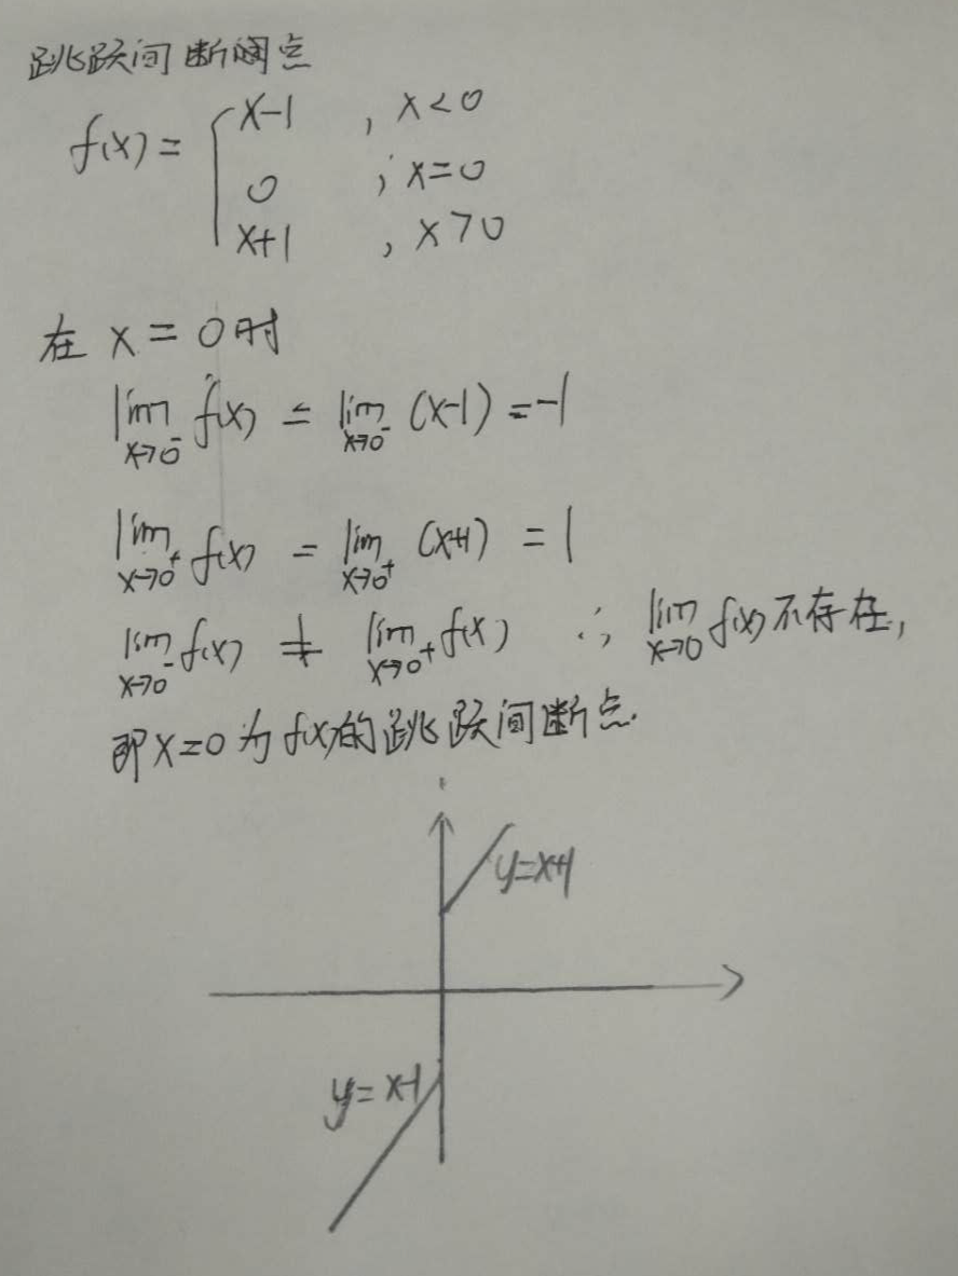 跳跃间断阔点
f(x) = { x-1 , x<0
0 ; x=0
x+1 , x>0
在 x = 0 时
lim x→0⁻ f(x) = lim x→0⁻ (x-1) = -1
lim x→0⁺ f(x) = lim x→0⁺ (x+1) = 1
lim x→0⁻ f(x) ≠ lim x→0⁺ f(x) ∴ lim x→0 f(x) 不存在,
即 x=0 为 f(x) 的跳跃间断点.
y=x+1
y=x-1